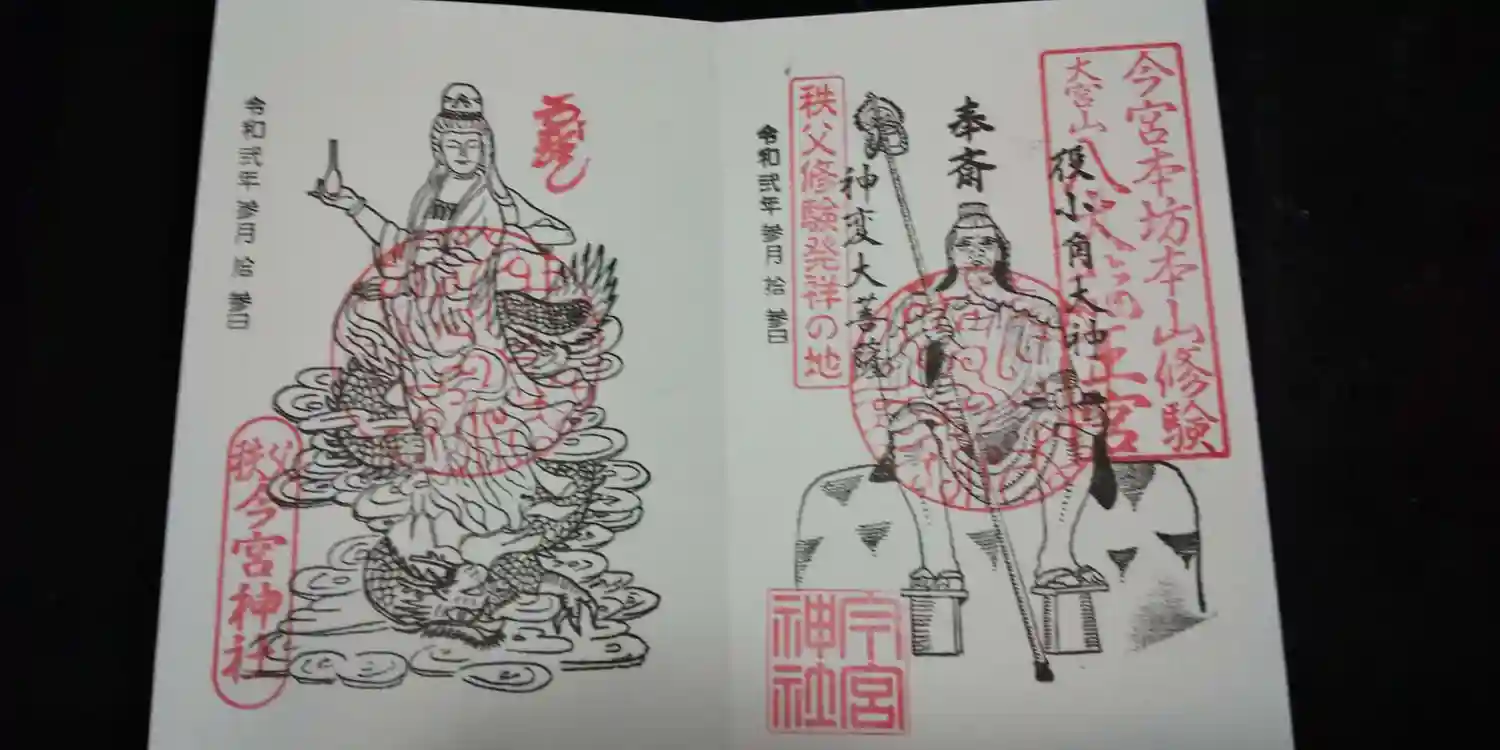 今宮本坊本山修験
大宮山八大龍王宮
役小角大神
奉斎
神変大菩薩
秩父修験発祥の地
令和弐年参月拾参日
今宮
神社
令和弐年参月拾参日
秩父今宮神社